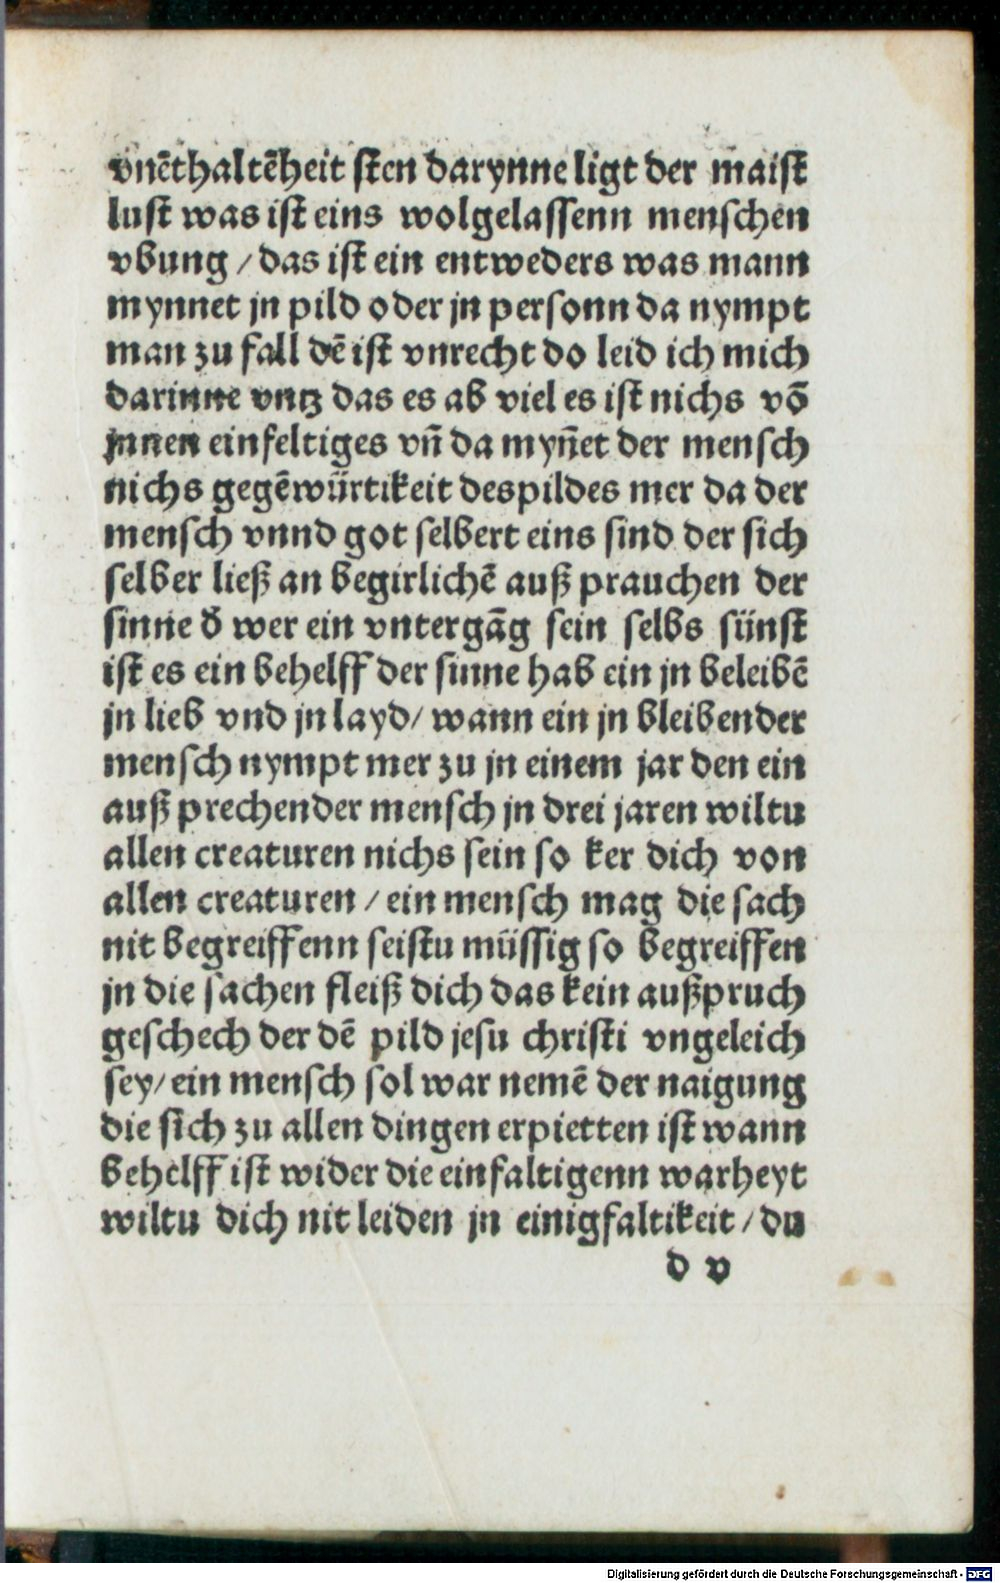 vnēthaltēheit sten darynne ligt der maist
lust was ist eins wolgelassenn menschen
vbung / das ist ein entweders was mann
mynnet jn pild oder jn personn da nympt
man zu fall dē ist vnrecht do leid ich mich
darinne vntz das es ab viel es ist nichs vō
jnnen einfeltiges vn̄ da myn̄et der mensch
nichs gegēwürtikeit des pildes mer da der
mensch vnnd got selbert eins sind der sich
selber ließ an begirlichē auß prauchen der
sinne d̄ wer ein vntergāg sein selbs sünst
ist es ein behelff der sinne hab ein jn beleibē
jn lieb vnd jn layd / wann ein jn bleibender
mensch nympt mer zu jn einem jar den ein
auß prechender mensch jn drei jaren wiltu
allen creaturen nichs sein so ker dich von
allen creaturen / ein mensch mag die sach
nit begreiffenn seistu müssig so begreiffen
jn die sachen fleiß dich das kein außpruch
geschech der dē pild jesu christi vngeleich
sey / ein mensch sol war nemē der naigung
die sich zu allen dingen erpietten ist wann
behelff ist wider die einfaltigenn warheyt
wiltu dich nit leiden jn einigfaltikeit / du
d v
Digitalisierung gefördert durch die Deutsche Forschungsgemeinschaft - DFG